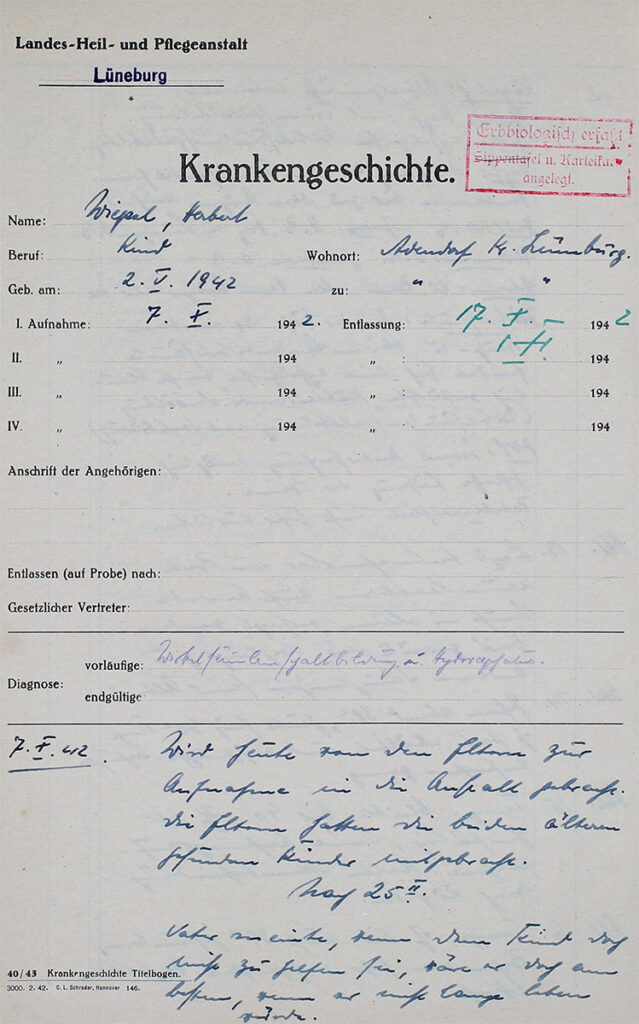 Landes-Heil- und Pflegeanstalt
Lüneburg
*
Erbbiologisch erfaßt
Sippentafel u. Karteikar
angelegt.
Krankengeschichte.
Name: Herbert
Beruf: Kind Wohnort: Adendorf Kr. Lüneburg.
Geb. am: 2. V. 1942 zu: " "
I. Aufnahme: 7. X. 1942. Entlassung: 17. X. 1942
II. „ 194 „ : 194
III. „ 194 „ 194
IV. „ 194 „ 194
Anschrift der Angehörigen:
Entlassen (auf Probe) nach:
Gesetzlicher Vertreter:
Diagnose:
vorläufige: Wirbelsäulenspaltbildung u. Hydrocephalus.
endgültige
7. X. 42. Wird heute von den Eltern zur
Aufnahme in die Anstalt gebracht.
Die Eltern hatten die beiden älteren
gesunden Kinder mitgebracht.
25
Vater meinte, wenn dem Kind doch
nicht zu helfen sei, wäre es doch am
besten, wenn er nicht lange leben
würde.
40/43 Krankengeschichte Titelbogen.
3000. 2. 42. C. L. Schrader, Hannover 146.